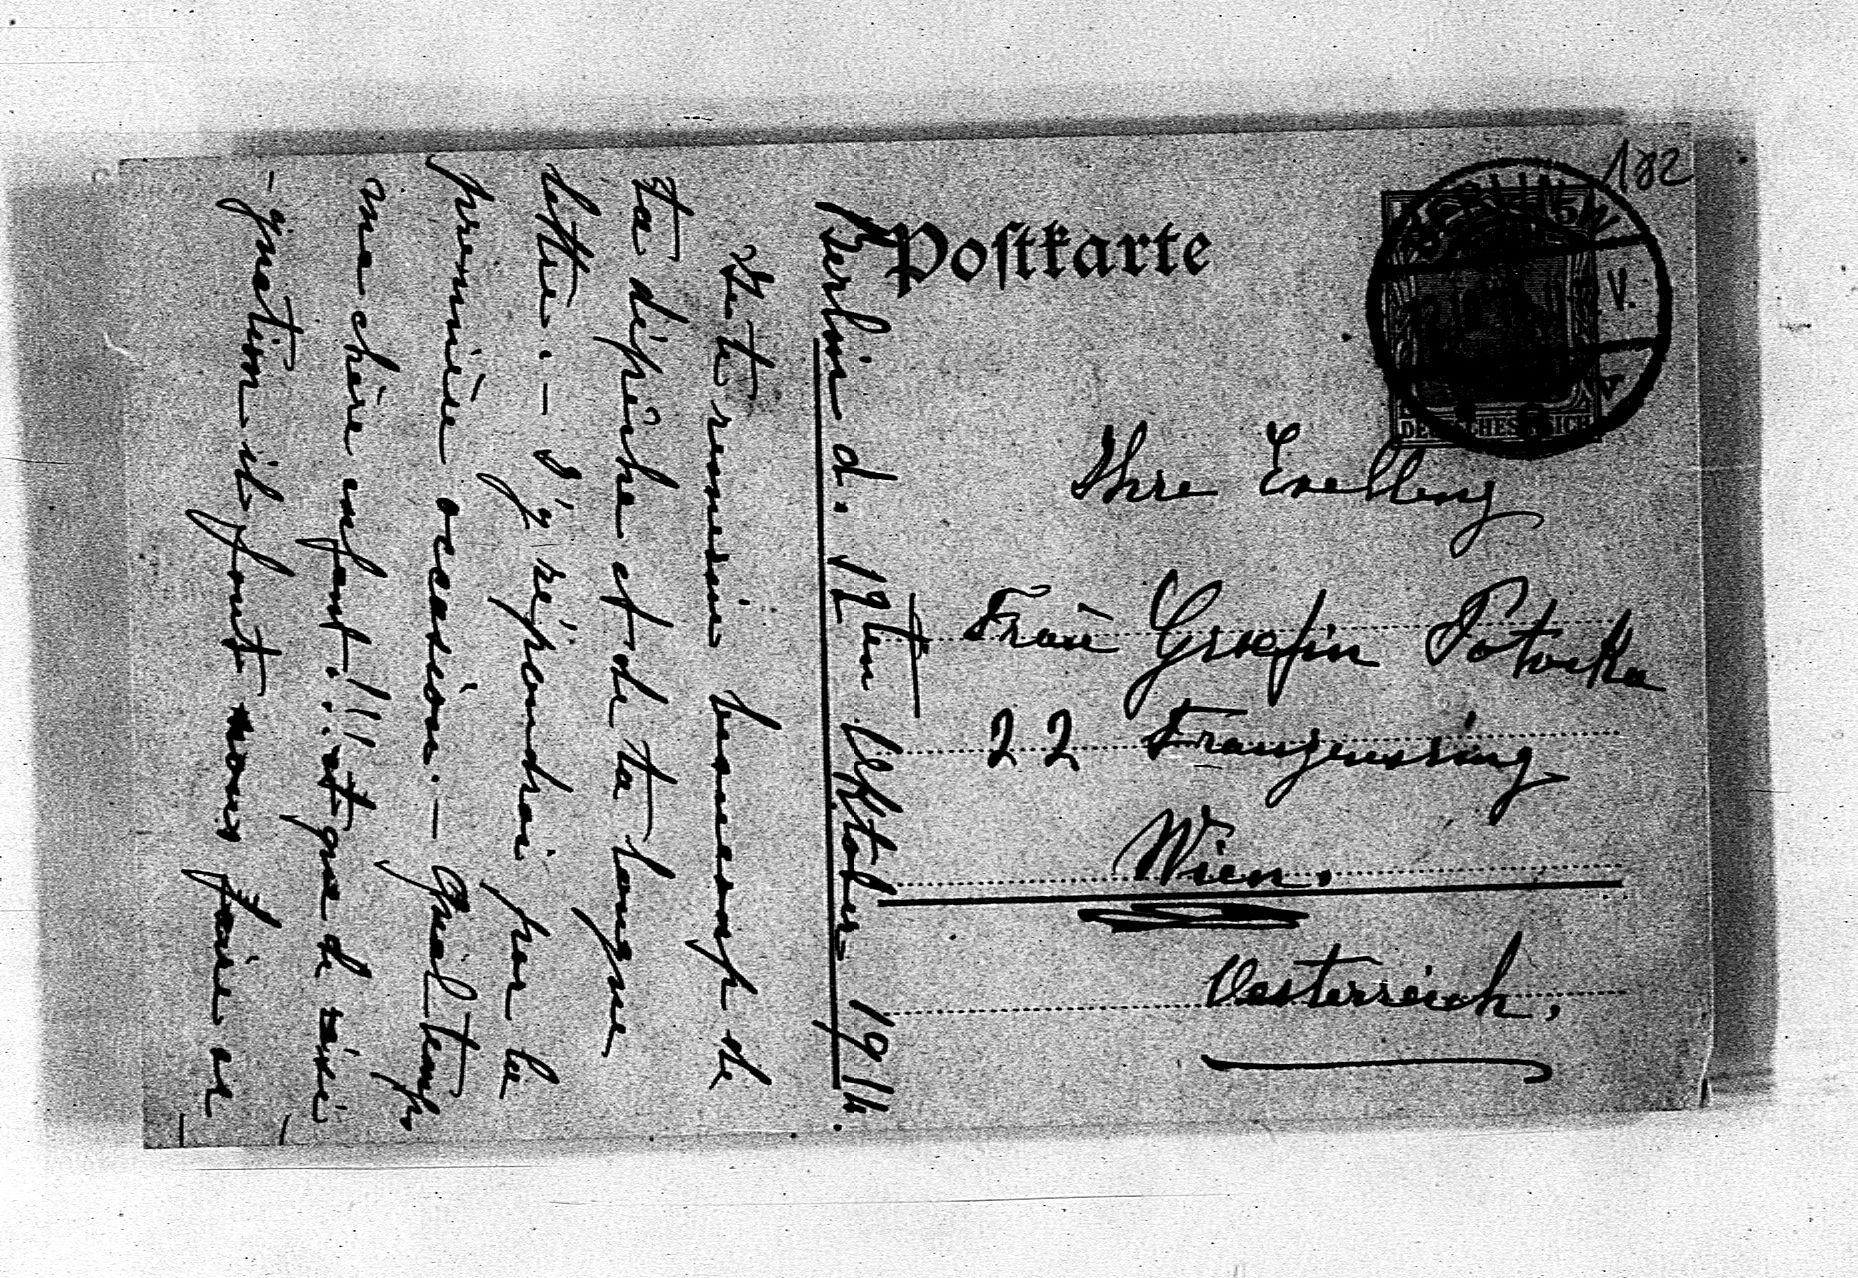 182
Postkarte
BERLIN
V.
DEUTSCHES REICH
Ihre Exellenz
Frau Græfin Potocka
22 Franzensring
Wien.
Oesterreich.
Berlin d. 12ten Oktober 1914.
Je te remercie beaucoup de
ta dépêche et de ta longue
lettre. - J'y répondrai par la
première occasion. - Quel temps
ma chère enfant!!! et que de
-quétion il faut nous faire et